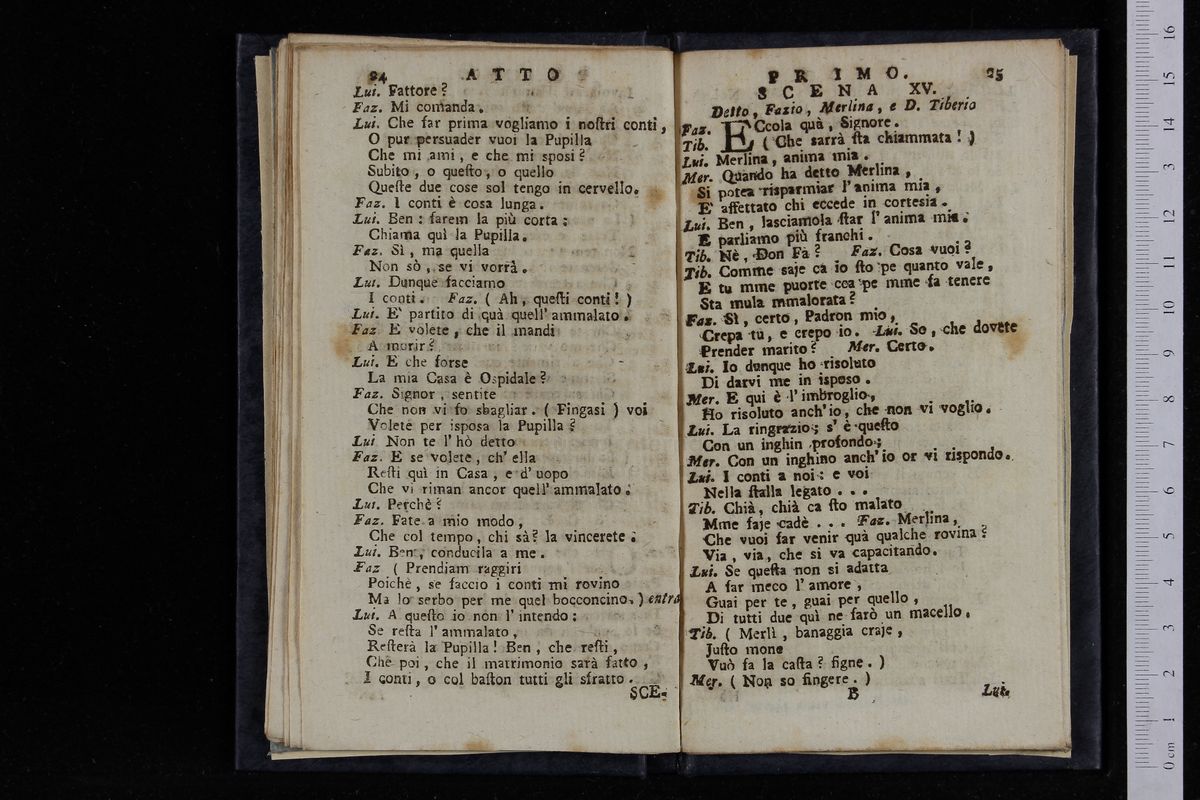 24 ATTO
Lui. Fattore?
Faz. Mi comanda.
Lui. Che far prima vogliamo i noſtri conti,
O pur perſuader vuoi la Pupilla
Che mi ami, e che mi spoſi?
Subito, o queſto, o quello
Queſte due coſe sol tengo in cervello.
Faz. I conti è coſa lunga.
Lui. Ben: farem la più corta:
Chiama quì la Pupilla.
Faz. Sì, ma quella
Non sò, se vi vorrà.
Lui. Dunque facciamo
I conti. Faz. ( Ah, queſti conti! )
Lui. E' partito di quà quell' ammalato.
Faz E volete, che il mandi
A morir?
Lui. E che forse
La mia Casa è Ospidale?
Faz. Signor, sentite
Che non vi fo sbagliar. ( Fingasi ) voi
Volete per isposa la Pupilla?
Lui Non te l' hò detto
Faz. E se volete, ch' ella
Reſti quì in Casa, e d' uopo
Che vi riman ancor quell' ammalato.
Lui. Perchè?
Faz. Fate a mio modo,
Che col tempo, chi sà? la vincerete.
Lui. Ben, conducila a me.
Faz ( Prendiam raggiri
Poichè, se faccio i conti mi rovino
Ma lo serbo per me quel bocconcino. ) entra
Lui. A queſto io non l' intendo:
Se reſta l' ammalato,
Reſterà la Pupilla! Ben, che reſti,
Chè poi, che il matrimonio sarà fatto,
I conti, o col baſton tutti gli sfratto.
SCE-
PRIMO. 25
SCENA XV.
Detto, Fazio, Merlina, e D. Tiberio
Faz. ECcola quà, Signore.
Tib. ( Che sarrà ſta chiammata! )
Lui. Merlina, anima mia.
Mer. Quando ha detto Merlina,
Si potea risparmiar l' anima mia,
E' affettato chi eccede in cortesia.
Lui. Ben, lasciamola ſtar l' anima mia.
E parliamo più franchi.
Tib. Nè, Don Fa? Faz. Cosa vuoi?
Tib. Comme saje ca io ſto pe quanto vale,
E tu mme puorte cca pe mme fa tenere
Sta mula mmalorata?
Faz. Sì, certo, Padron mio,
Crepa tu, e crepo io. Lui. So, che dovete
Prender marito? Mer. Certo.
Lui. Io dunque ho risoluto
Di darvi me in isposo.
Mer. E qui è l' imbroglio,
Ho risoluto anch' io, che non vi voglio.
Lui. La ringrazio; s' è queſto
Con un inghin profondo;
Mer. Con un inghino anch' io or vi rispondo.
Lui. I conti a noi: e voi
Nella ſtalla legato . . .
Tib. Chià, chià ca ſto malato
Mme faje cadè . . . Faz. Merlina,
Che vuoi far venir quà qualche rovina?
Via, via, che si va capacitando.
Lui. Se queſta non si adatta
A far meco l' amore,
Guai per te, guai per quello,
Di tutti due quì ne farò un macello.
Tib. ( Merlì, banaggia craje,
Juſto mone
Vuò fa la caſta? figne. )
Mer. ( Non so fingere. )
B Lui.